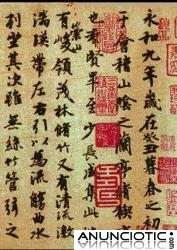 永和九年歲在癸丑暮春之初
于會稽山陰之蘭亭脩稧
也羣賢畢至少長咸集此
有崇山峻領茂林脩竹又有清流激
湍暎帶左右引以為流觴曲水
列坐其次雖無絲竹管弦之
ANUNCIOTIC